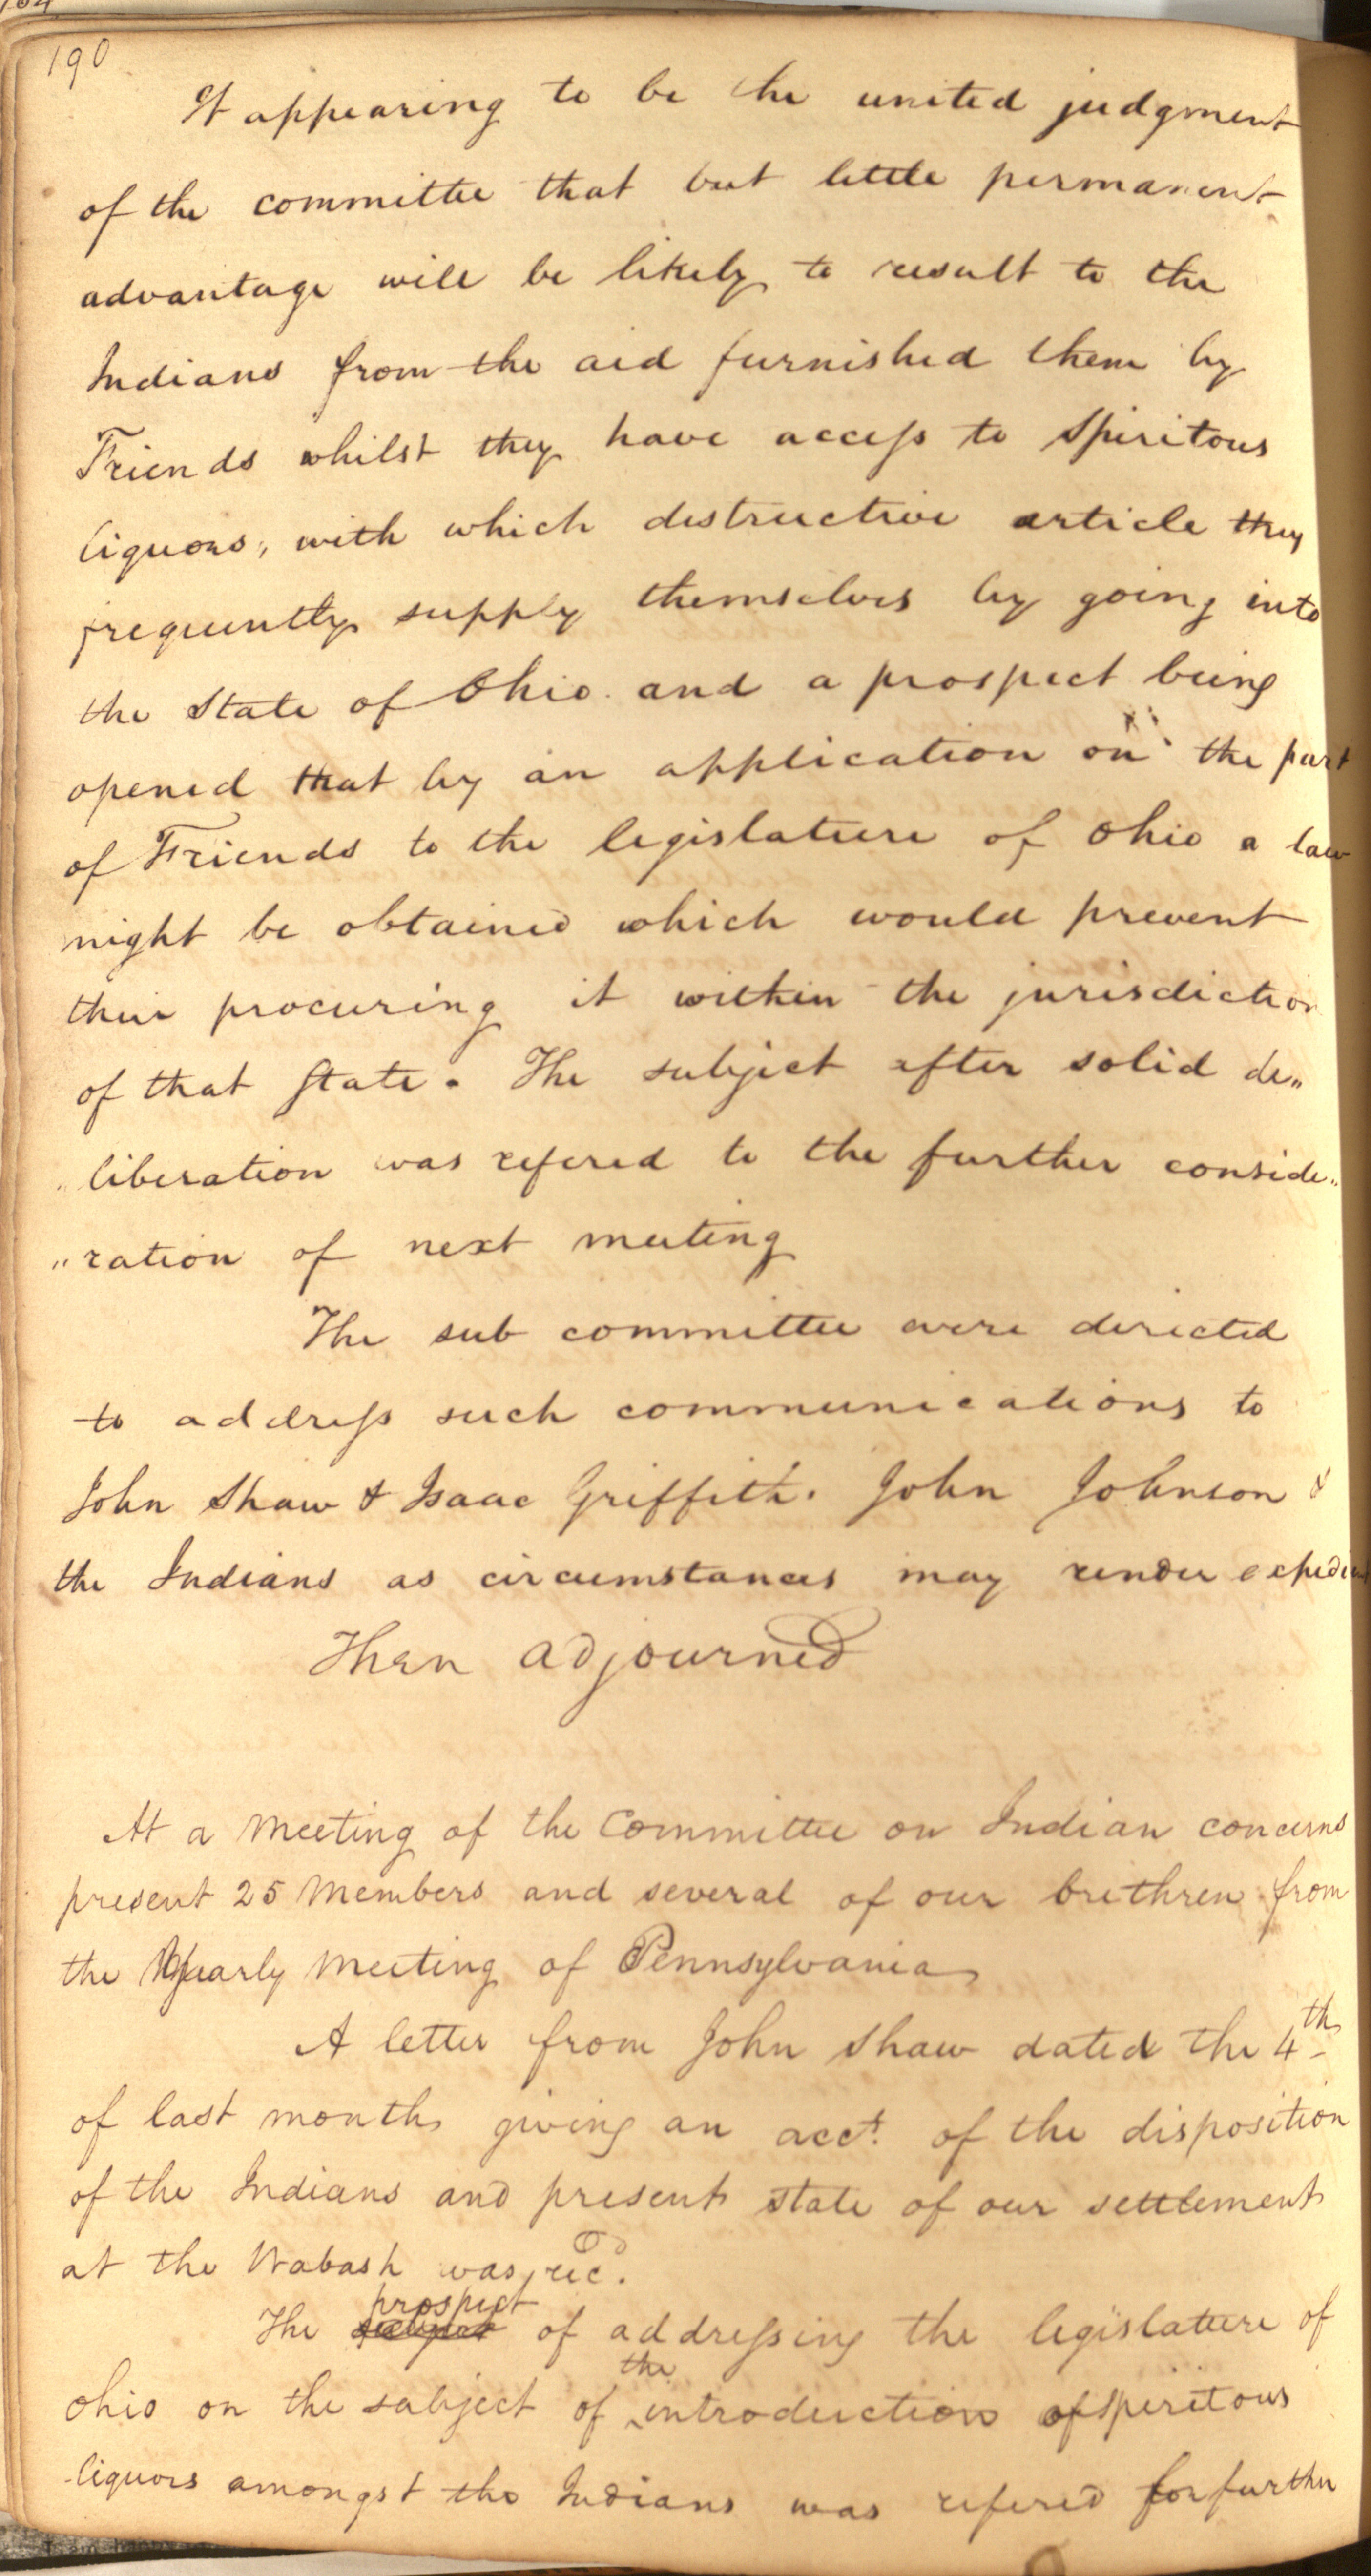 190
It appearing to be the united judgment
of the committee that but little permanent
advantage will be likely to result to the
Indians from the aid furnished them by
Friends whilst they have access to Spiritous
liquors, with which destructive article they
frequently supply themselves by going into
the State of Ohio. and a prospect being
opened that by an application on the part
of Friends to the legislature of Ohio a law
might be obtained which would prevent
their procuring it within the jurisdiction
of that State. The subject after solid de„
„liberation was refered to the further conside„
„ration of next meeting
The sub committee were directed
to address such communications to
John Shaw & Isaac Griffith. John Johnson &
the Indians as circumstances may render expedient
Then adjourned
At a Meeting of the Committee on Indian concerns
present 25 Members and several of our brethren from
the Yearly Meeting of Pennsylvania
A letter from John Shaw dated the 4th
of last month giving an acct. of the disposition
of the Indians and present state of our settlement
at the Wabash was, recd.
prospect
The subject of addressing the legislature of
the
Ohio on the subject of ‸introduction of spiritous
liquors amongst the Indians was refered for further